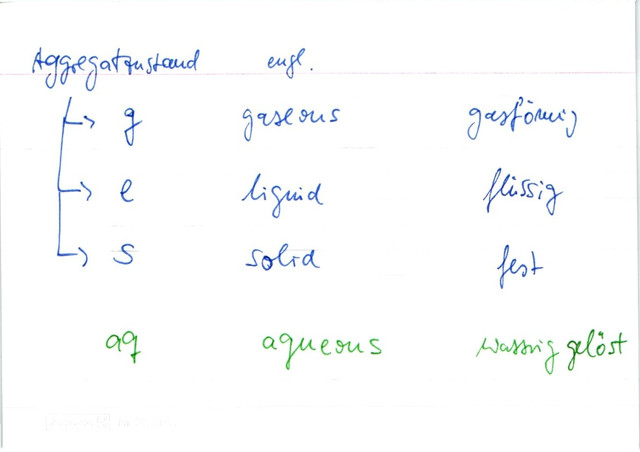 Aggregatzustand engl.
g gaseous gasförmig
l liquid flüssig
s solid fest
aq aqueous wassrig gelöst